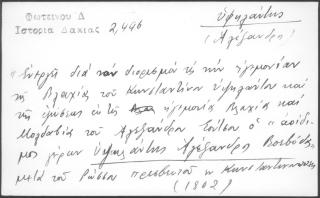 Φωτεινου Δ
Ιστορια Δακιας 2,446
Υψηλάντης
(Αλέξανδρος)
"Ενεργεῖ διὰ τὸν διορισμὸν εἰς τὴν ἡγεμονίαν
τῆς Βλαχίας τοῦ Κωνσταντίνου Ὑψηλάντου καὶ
τῆς ἐνώσεως εἰς τῆς ἡγεμονία Βλαχία καὶ
Μολδαβίας τοῦ Ἀλεξάνδρου Σούτσου ὁ "ἀοίδι
μος γέρων Ὑψηλάντης Ἀλέξανδρος Βοεβόδας
μετὰ τοῦ Ρώσσου πρεσβευτοῦ ἐν Κωνσταντινουπόλει
(1802)